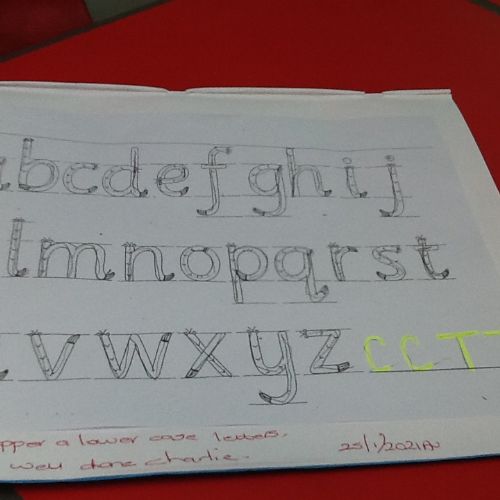 abcdefghij
lmnopqrst
vwxyz CCTT
upper a lower case letters.
well done charlie. 25/1/2021